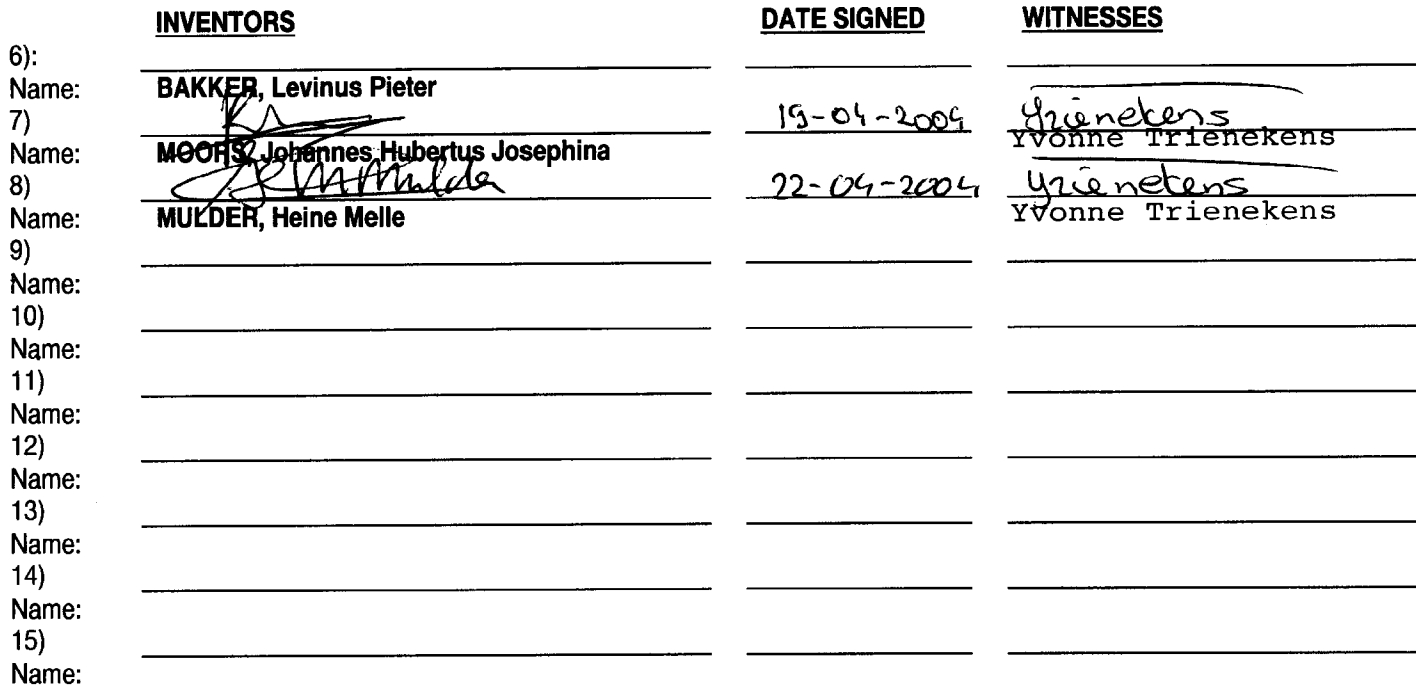 INVENTORS DATE SIGNED WITNESSES
6):
Name: BAKKER, Levinus Pieter
7) 19-04-2004 YTrienekens
Yvonne Trienekens
Name: MOORS, Johannes Hubertus Josephina
8) Mulder 22-04-2004 YTrienekens
Yvonne Trienekens
Name: MULDER, Heine Melle
9)
Name:
10)
Name:
11)
Name:
12)
Name:
13)
Name:
14)
Name:
15)
Name: